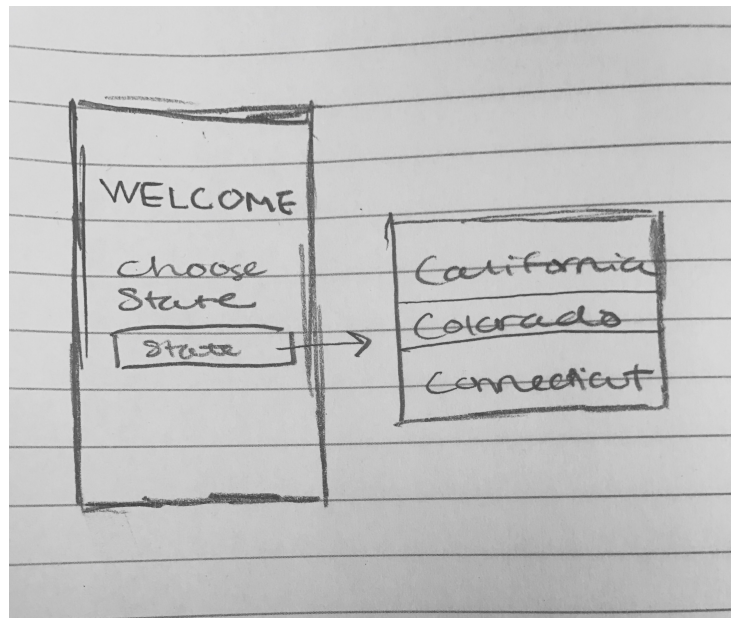 WELCOME
choose
State
State
California
Colorado
Connecticut